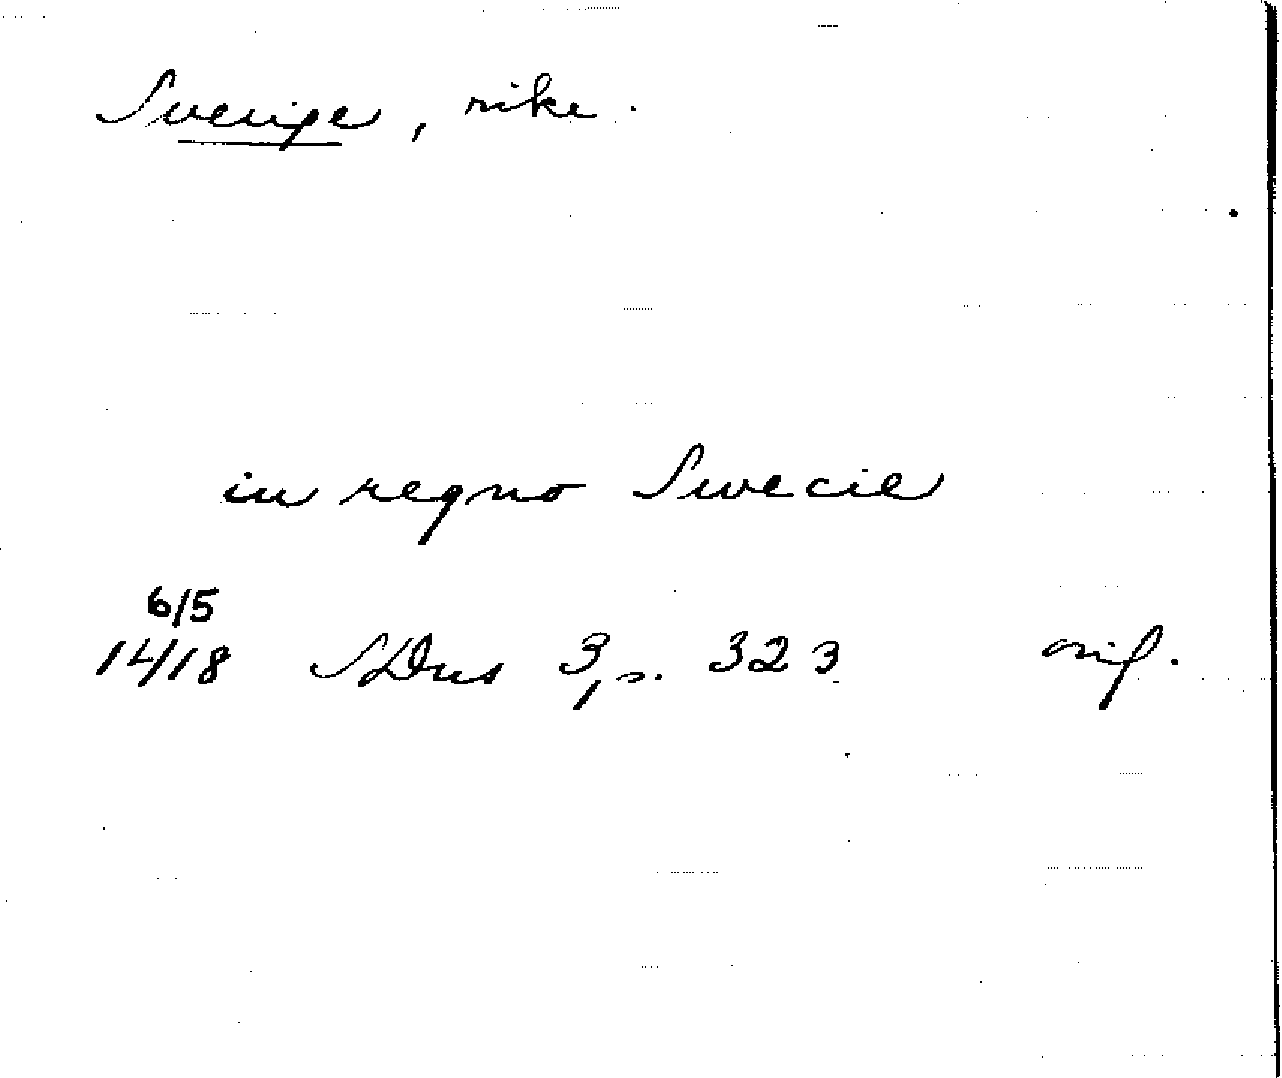 Sverige, rike.
in regno Swecie
6/5
14/18 SDns 3, s. 323 orig.